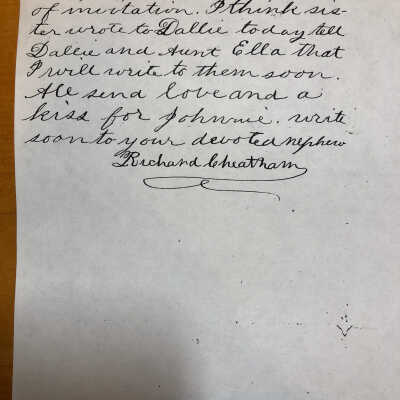 of invitation. I think sis-
ter wrote to Dallie today tell
Dallie and Aunt Ella that
I will write to them soon.
All send love and a
kiss for Johnnie. write
soon to your devoted nephew
Richard Cheatham